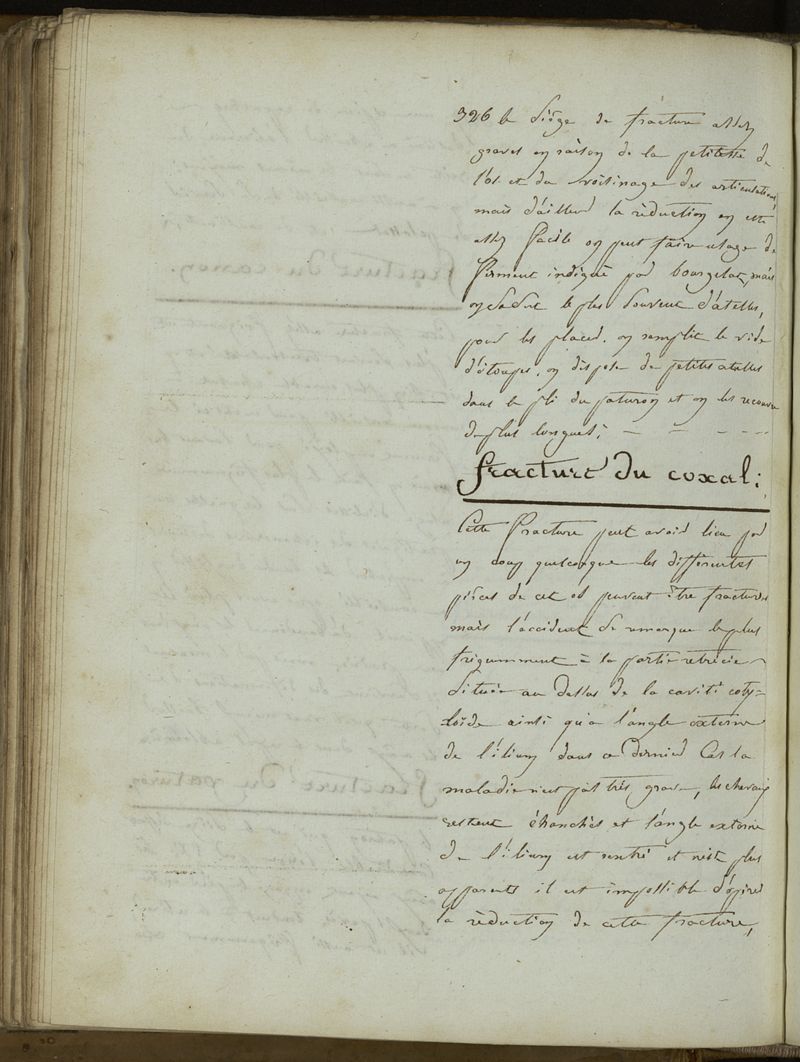 326 le siège de fracture assez
graves en raison de la petitesse de
l'os et du voisinage des articulations,
mais d'ailleur la réduction en etti
assez facile on peut faire usage de
firment indiqué par bourgelat, mais
on se sert le plus souvent d'atelles,
pour les placer, on remplit le vide
d'étoupes, on dispose de petites atelles
dans le pli du paturon et on les recouvre
de plus longues;
fracture du coxal;
Cette fracture peut avoir lieu par
un coup quelconque les différentes
pièces de cet os peuvent être fracturés
mais l'accident se remarque le plus
fréqumment à la partie rétrécie
située au dessus de la cavité coty=
loïde ainsi qu'a l'angle externe
de l'ilium dans ce dernier Cas la
maladie n'est pas très grave, les chevaux
restent éhanchés et l'angle externe
de l'ilium est rentré et n'est plus
apparents il est impossible d'opérer
la réduction de cette fracture,